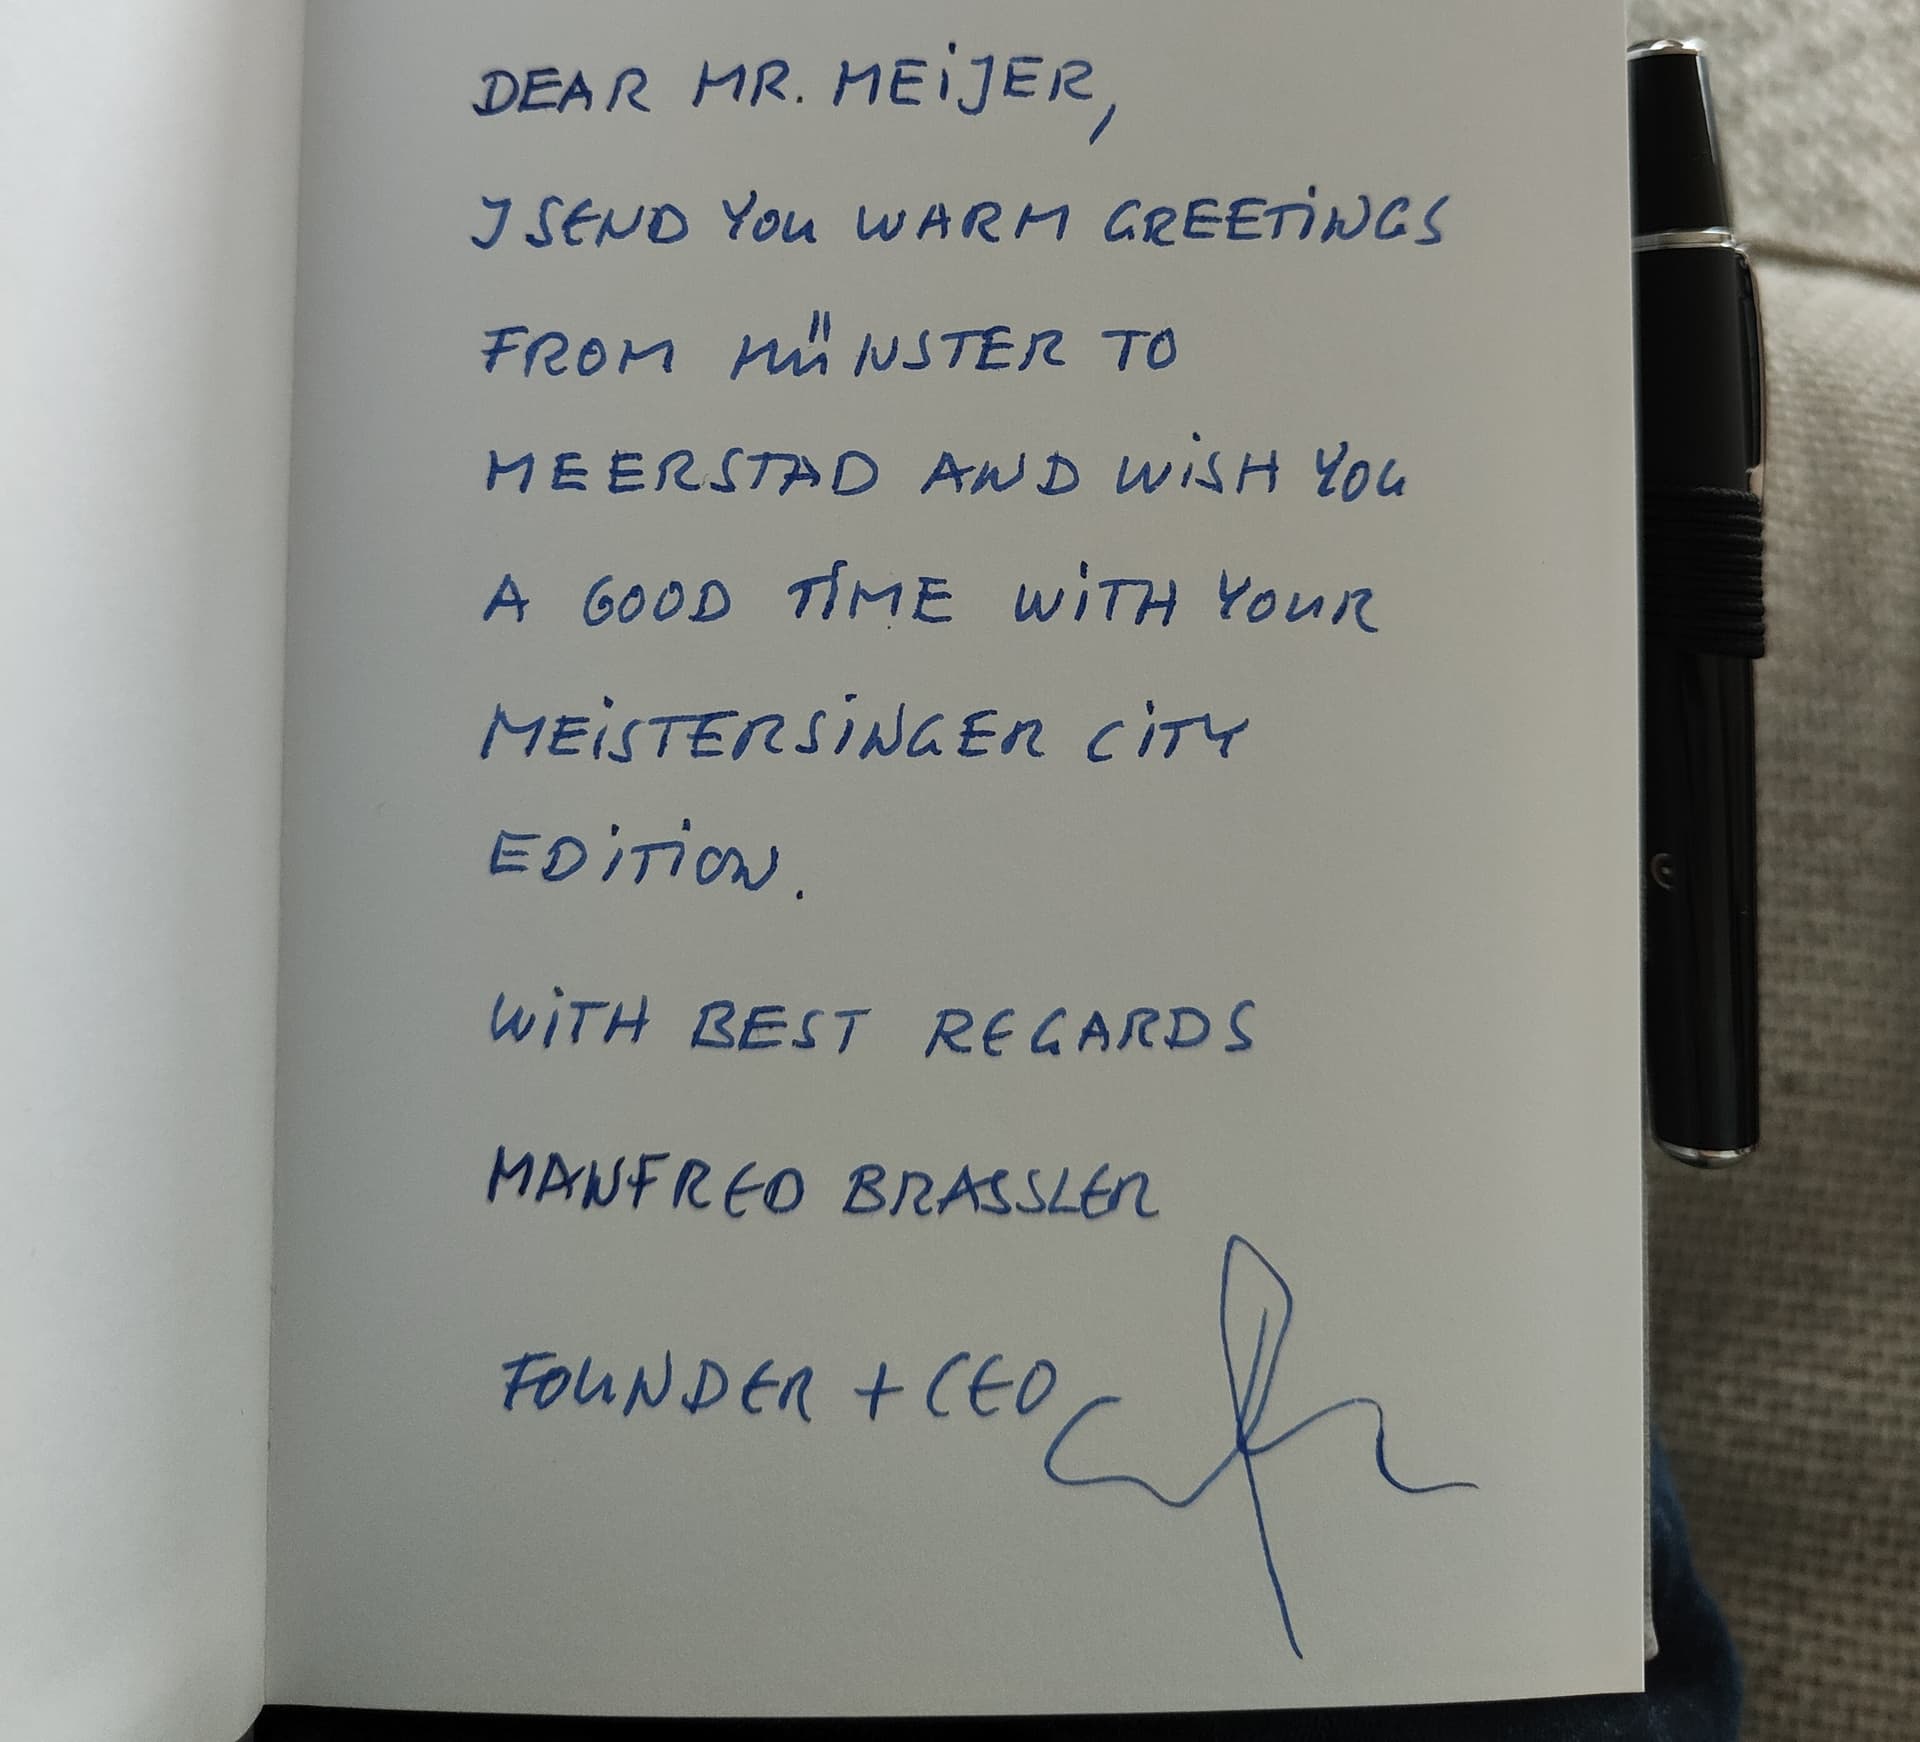 DEAR MR. MEiJER,
J SEND YOU WARM GREETiNGS
FROM MÜNSTER TO
MEERSTAD AND WiSH YOU
A GOOD TiME WiTH YOUR
MEiSTERSiNGER CiTY
EDiTiON.
WiTH BEST REGARDS
MANFRED BRASSLER
FOUNDER + CEO